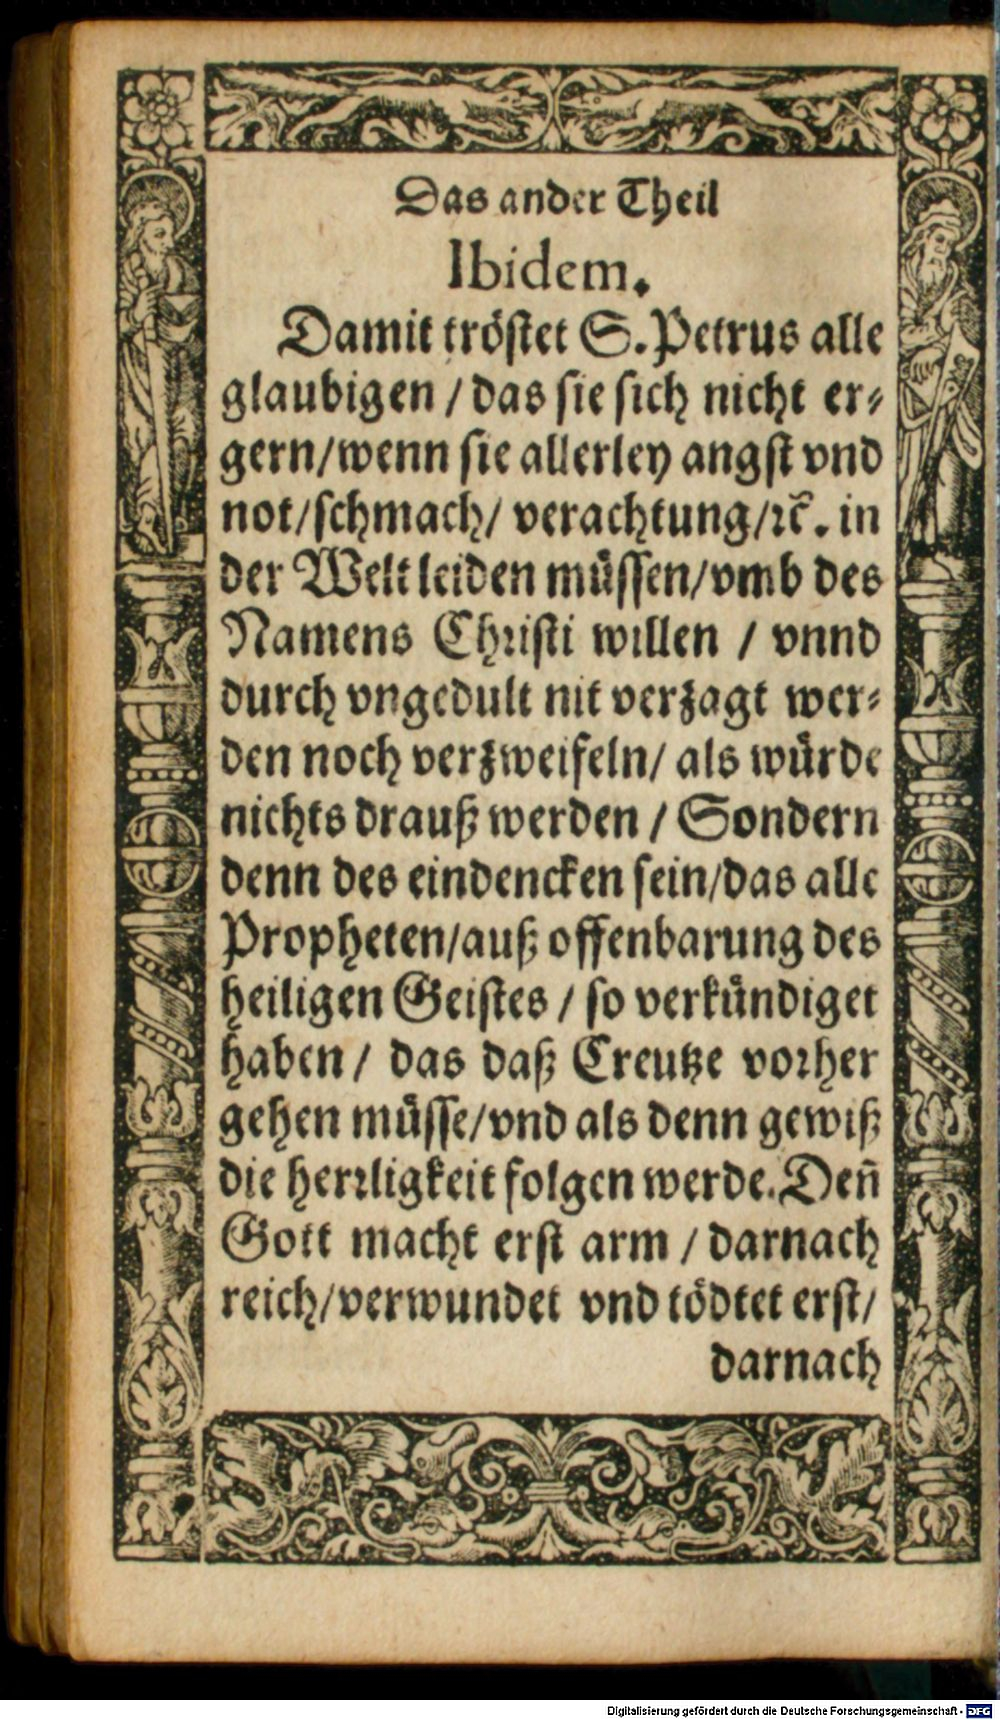 Das ander Theil
Ibidem.
Damit tröstet S. Petrus alle
glaubigen / das sie sich nicht er⸗
gern/wenn sie allerley angst vnd
not/schmach/ verachtung/ꝛc̃. in
der Welt leiden müssen/vmb des
Namens Christi willen / vnnd
durch vngedult nit verzagt wer⸗
den noch verzweifeln/ als würde
nichts drauß werden / Sondern
denn des eindencken sein/das alle
Propheten/auß offenbarung des
heiligen Geistes / so verkündiget
haben / das daß Creutze vorher
gehen müsse/vnd als denn gewiß
die herrligkeit folgen werde. Deñ
Gott macht erst arm / darnach
reich/verwundet vnd tödtet erst/
darnach
Digitalisierung gefördert durch die Deutsche Forschungsgemeinschaft - DFG